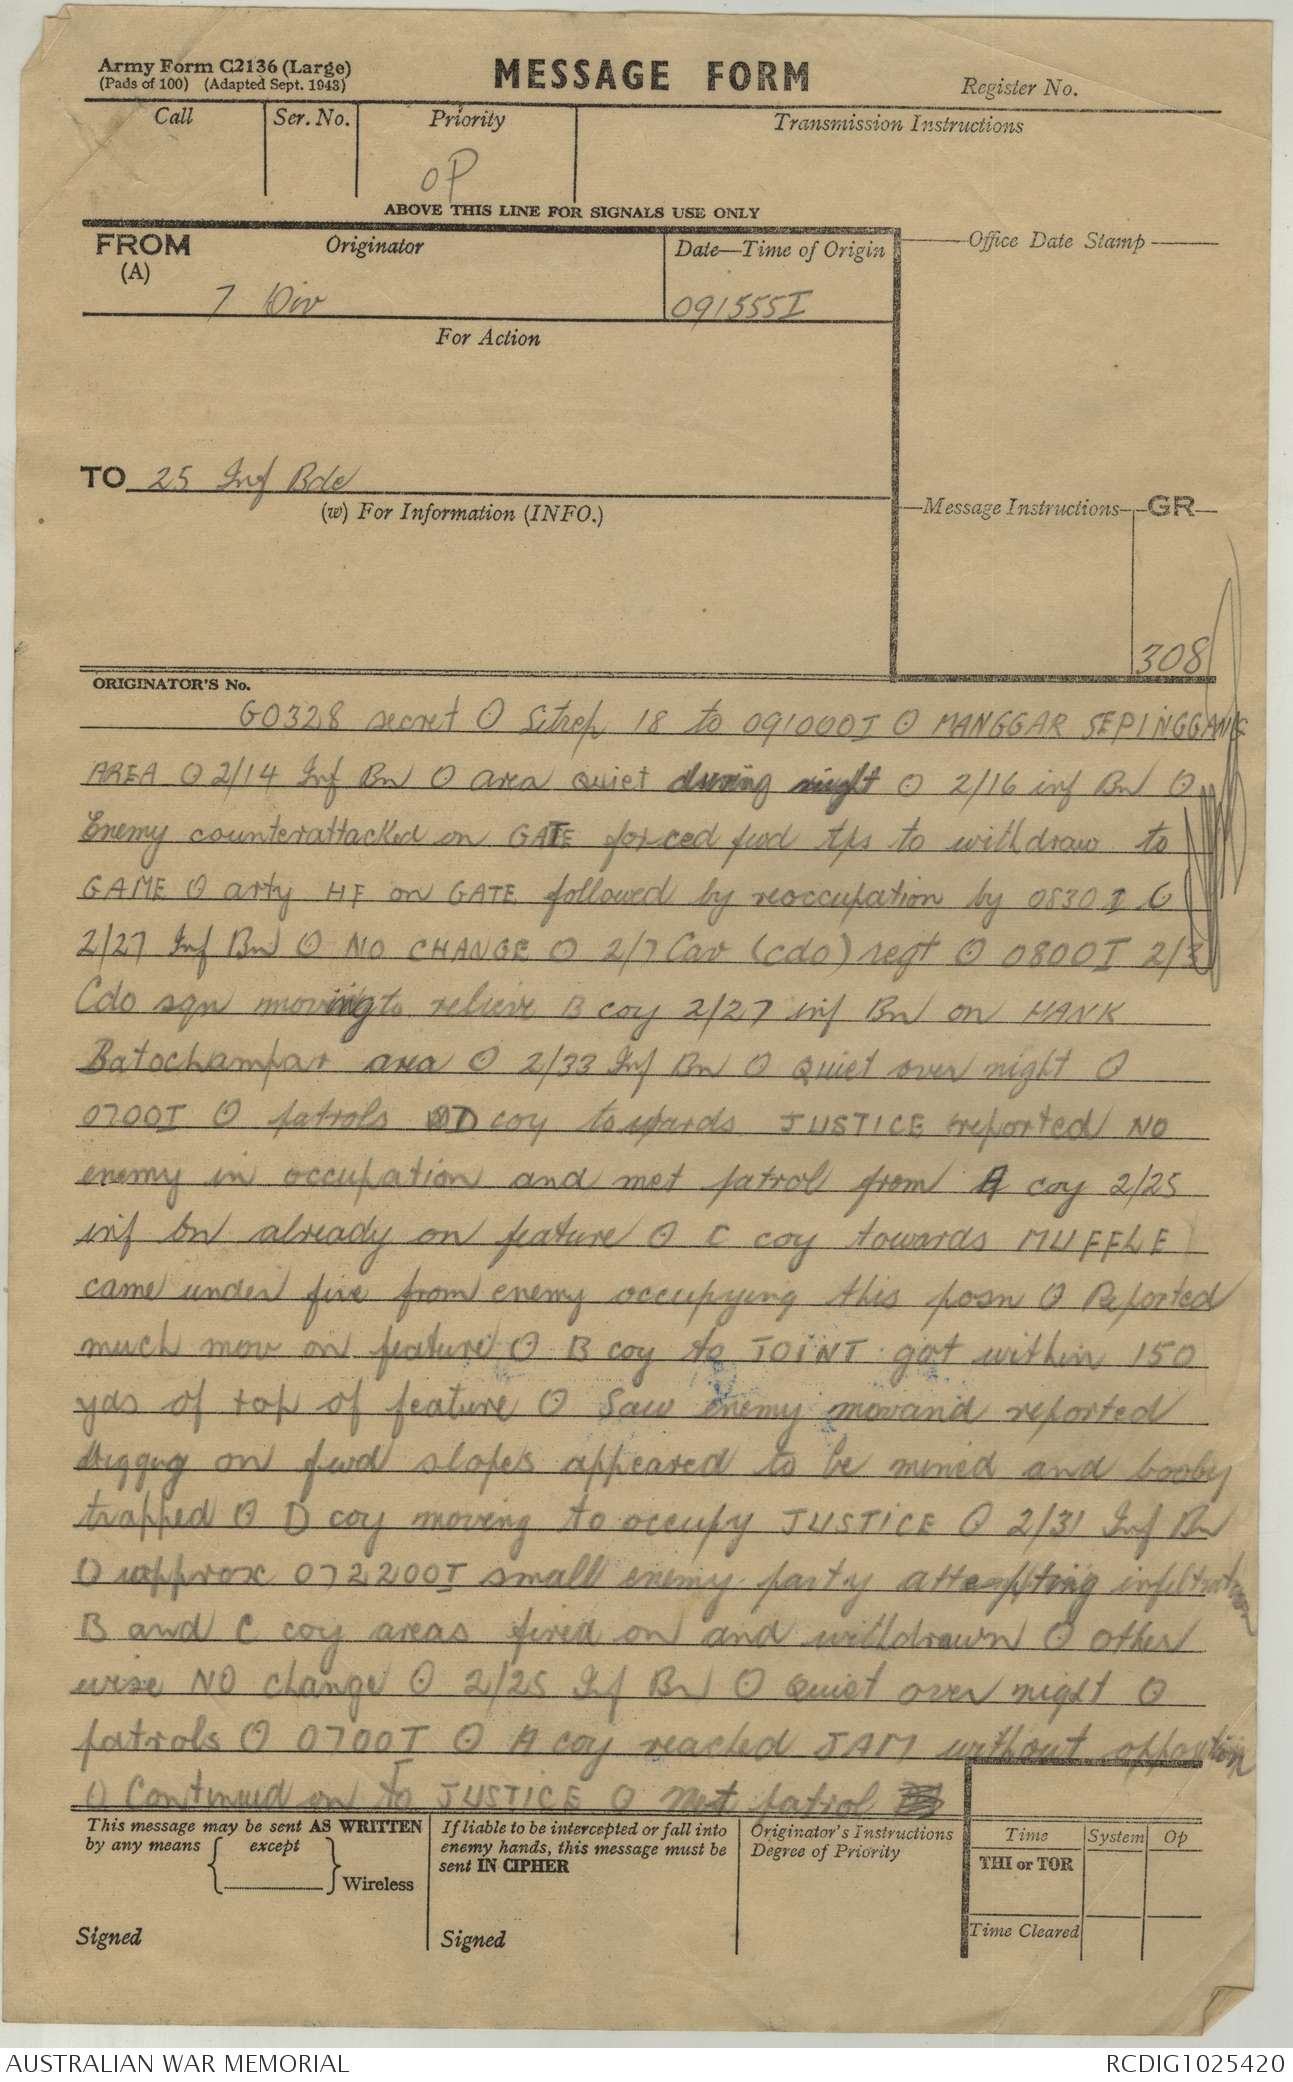 Army Form C2136 (Large)
(Pads of 100) (Adapted Sept. 1943)
MESSAGE FORM
Register No.
Call
Ser. No.
Priority
Transmission Instructions
OP
ABOVE THIS LINE FOR SIGNALS USE ONLY
FROM
(A)
Originator
Date—Time of Origin
Office Date Stamp
7 Div
091555I
For Action
TO 25 Inf Bde
(w) For Information (INFO.)
Message Instructions
GR
308
ORIGINATOR'S No.
GO328 secret ⊙ Sitrep 18 to 091000I ⊙ MANGGAR SEPINGGANG
AREA ⊙ 2/14 Inf Bn ⊙ area quiet during night ⊙ 2/16 inf Bn ⊙
Enemy counterattacked on GATE forced fwd tps to withdraw to
GAME ⊙ arty HF on GATE followed by reoccupation by 0830I ⊙
2/27 Inf Bn ⊙ NO CHANGE ⊙ 2/7 Cav (cdo) regt ⊙ 0800I 2/3
Cdo sqn moving to relieve B coy 2/27 inf Bn on HANK
Batochampar area ⊙ 2/33 Inf Bn ⊙ Quiet over night ⊙
0700I ⊙ patrols D coy towards JUSTICE reported NO
enemy in occupation and met patrol from A coy 2/25
inf bn already on feature ⊙ C coy towards MUFFLE
came under fire from enemy occupying this posn ⊙ Reported
much mov on feature ⊙ B coy to JOINT got within 150
yds of top of feature ⊙ Saw enemy mov and reported
digging on fwd slopes appeared to be mined and booby
trapped ⊙ D coy moving to occupy JUSTICE ⊙ 2/31 Inf Bn
⊙ approx 072200I small enemy party attempting infiltration
B and C coy areas fired on and withdrawn ⊙ other
wise NO change ⊙ 2/25 Inf Bn ⊙ Quiet over night ⊙
patrols ⊙ 0700I ⊙ A coy reached JAM without opposition
⊙ Continued on to JUSTICE ⊙ Met patrol
This message may be sent AS WRITTEN
by any means except
Wireless
Signed
If liable to be intercepted or fall into
enemy hands, this message must be
sent IN CIPHER
Signed
Originator's Instructions
Degree of Priority
Time
System
Op
THI or TOR
Time Cleared
AUSTRALIAN WAR MEMORIAL
RCDIG1025420